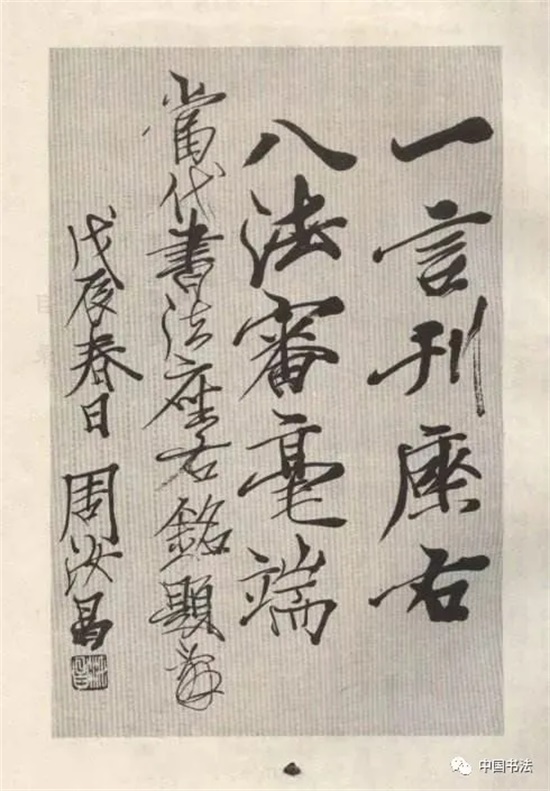 一言刊座右
八法審毫端
當代書法座右銘題
戊辰春日 周汝昌
中国书法